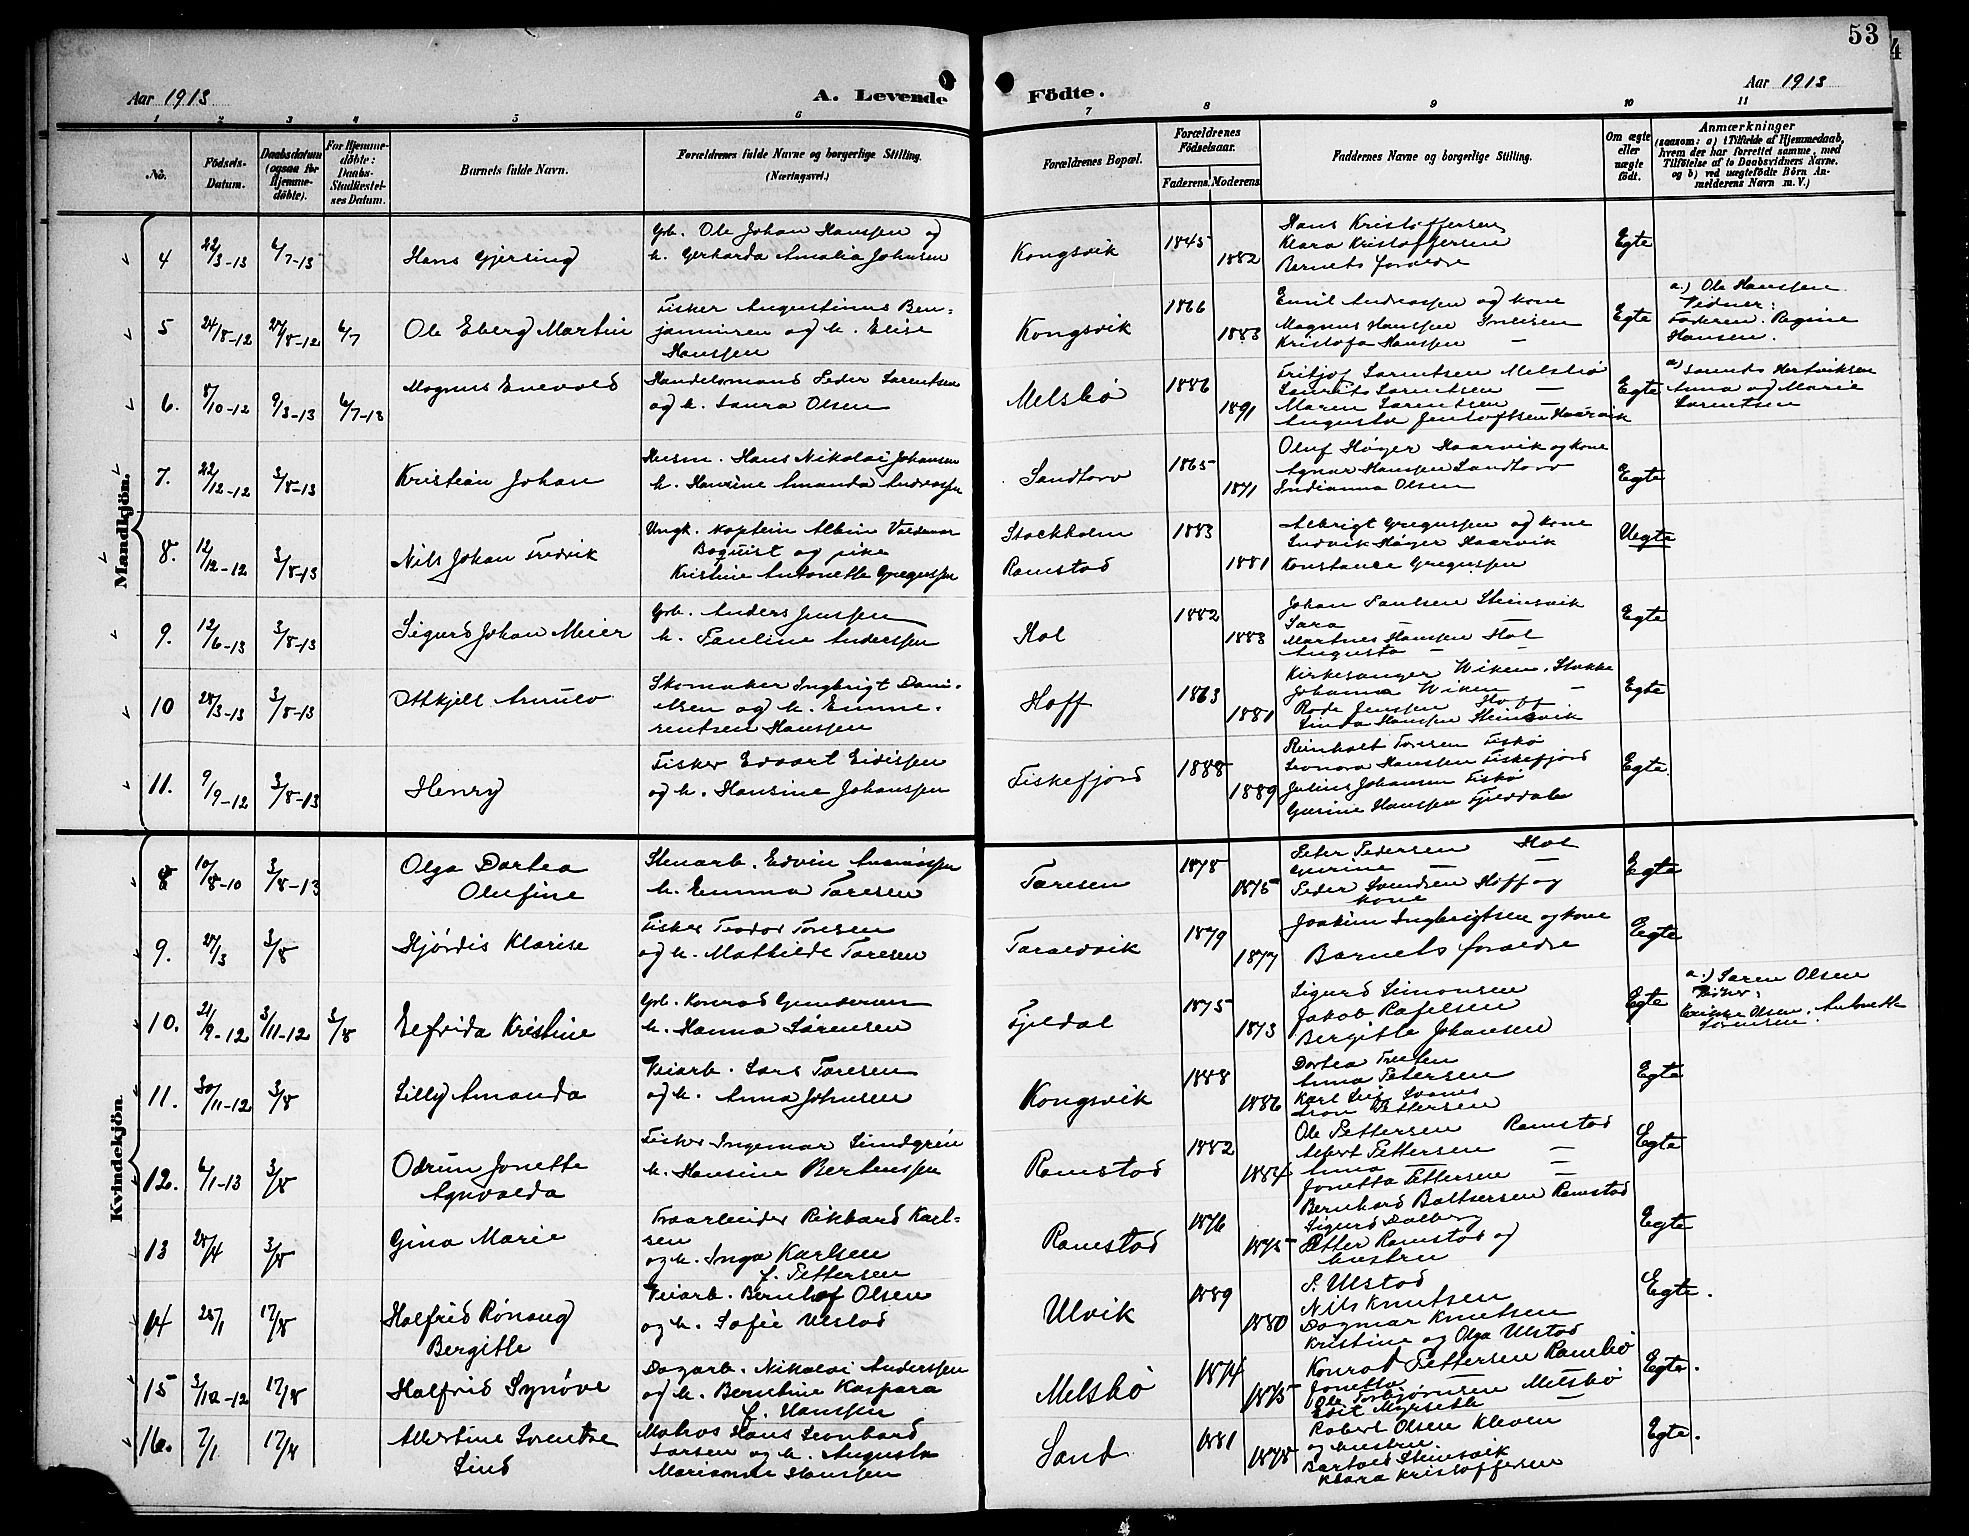 53
4
Aar 1913
A. Levende
Födte.
Aar 1913
1 2 3 4 5 6 7 8 9 10 11
No.
Födsels-
Datum.
Daabsdatum
(ogsaa for
Hjemme-
döbte).
For Hjemme-
döbte:
Daabs-
Stadfæstel-
ses Datum.
Barnets fulde Navn.
Forældrenes fulde Navne og borgerlige Stilling.
(Næringsvei.)
Forældrenes Bopæl.
Forældrenes
Födselsaar.
Faderens. Moderens.
Faddernes Navne og borgerlige Stilling.
Om ægte
eller
uægte
födt.
Anmærkninger
(saasom: a) i Tilfælde af Hjemmedaab,
hvem der har forrettet samme, med
Tilföielse af to Daabsvidners Navne.
og b) ved uægtefödte Börn An-
melderens Navn m. V.)
Mandkjön.
4 22/3-13 6/7-13 Hans Gjersing
Grb. Ole Johan Hanssen og
h. Gerharda Amalia Johnsen
Kongsvik 1845 1882
Hans Kristoffersen
Klara Kristoffersen
Barnets foreldre
Egte
5 24/8-12 27/8-12 6/7 Ole Eberg Martin
Fisker Augustinus Ben-
jaminsen og h. Elise
Hanssen
Kongsvik 1866 1883
Emil Andreassen og kone
Magnus Hanssen
Kristofa Hanssen —
Egte
a.) Ole Hanssen
Vidner:
Faderen. Regine
Hansen.
6. 8/10-12 9/3-13 6/7-13 Magnus Enevald
Handelsmand Peder Larentsen
og h. Laura Olsen
Melsbö 1886 1891
Fritjof Larentsen Melsbö
Laurits Larentsen —
Maren Larentsen —
Augusta Jentoftsen Haarvik
Egte
a) Hertviksen
Anna og Marie
Larentsen
7. 22/12-12 3/8-13 Kristian Johan
Husm. Hans Nikolai Johansen
h. Haurine Amanda Andreassen
Sandtorv 1865 1871
Oluf Höger Haarvik og kone
Agnar Hanssen Sandtorv
Indianna Olsen
Egte
8. 12/12-12 3/8-13 Nils Johan Fredrik
Ungk. Kaptein Albin Valdemar
Boquist og pike
Kristine Antonette Gregussen
Stockholm
Ramstad
1883 1881
Albrigt Gregussen og kone
Ludvik Höger Haarvik
Konstance Gregussen
Uegte
9. 12/6-13 3/8-13 Sigurd Johan Meier
Grb. Anders Jenssen
h. Pauline Anderssen
Hol 1882 1883
Johan Paulsen Steinsvik
Sara —
Martnes Hanssen Hol
Augusta —
Egte
10 28/3-13 3/8-13 Arnulv
Skomaker Ingbrigt Dani-
elsen og h. Emme-
rentsen Hanssen
Hoff 1863 1881
Kirkesanger Wiken. Stokke
Johanna Wiken —
Rode Jenssen Hoff
Linda Hanssen Steinsvik
Egte
11. 9/9-12 3/8-13 Henry
Fisker Edvart Eidissen
og h. Hansine Johanssen
Fiskefjord 1888 1889
Reinholt Toresen Fiskö
Leonora Hanssen Fiskefjord
Julius Johansen Fiskö
Gurine Hanssen Fjelddal
Egte.
Kvindekjön.
8 10/8-10 3/8-13 Olga Dortea
Olufine
Stenarb. Edvin Andreassen
h. Emma Toresen
Toresen 1878 1875
Peter Pedersen Hol
Gurine — —
Peder Svendsen Hoff og
kone
Egte
9. 27/3 3/8 Hjördis Klarise
Fisker Teodor Toresen
og h. Mathilde Toresen
Taraldvik 1879 1877
Joakim Ingbrigtsen og kone
Barnets foreldre
Egte
10. 21/9-12 3/11-12 3/8 Elfrida Kristine
Grb. Konrad Gundersen
h. Hanna Sörensen
Fjeldal 1875 1873
Sigurd Simonsen
Jakob Rafelsen
Bergitte Johansen
Egte
a.) Søren Olsen
Olsen. Antonette
Sørensen.
11. 30/11-12 3/8 Lilly Amanda
Veiarb. Lars Toresen
og h. Anna Johnsen
Kongsvik 1888 1886
Dortea
Anna Petersen
Karl
Leon Pettersen
Egte
12. 6/1-13 3/8 Odrun Jonette
Agnvalda
Fisker Ingemar Lundgren
h. Hansine Bertenssen
Ramstad 1882 1884
Ole Pettersen Ramstad
Albert Pettersen —
Anna —
Jonetta Pettersen —
Bernhard Baltsersen Ramstad
Egte
13 28/4 3/8 Gina Marie
Rikhard Karl-
sen
og h. Inga Karlsen
f. Pettersen
Ramstad 1876 1875
Sigurd Dalberg
Petter Ramstad og
hustru
Egte
14 28/1 17/8 Halfrid Rönaug
Bergitte
Veiarb. Bernhof Olsen
og h. Sofie Ulstad
Ulvik 1889 1880
P. Ulstad
Nils Knutsen
Dagmar Knutsen
Kristine og Olga Ulstad
Egte.
15 3/12-12 17/8 Halfrid Synöve
Dagarb. Nikolai Anderssen
og h. Berntine Kaspara
f. Hanssen
Melsbö 1874 1875
Konrad Pettersen Ramsbö
Jonetta
Ole Torbjörnsen Melsbö
Edit Myrseth —
Egte.
16. 7/1 17/8 Albertine Lorentse
Lind
Matros Hans Leonhard
Larsen og h. Augusta
Marianne Hanssen
Sand 1881 1878
Robert Olsen Kleven
og hustru.
Bartold Steinsvik
Klara Kristoffersen
Egte.